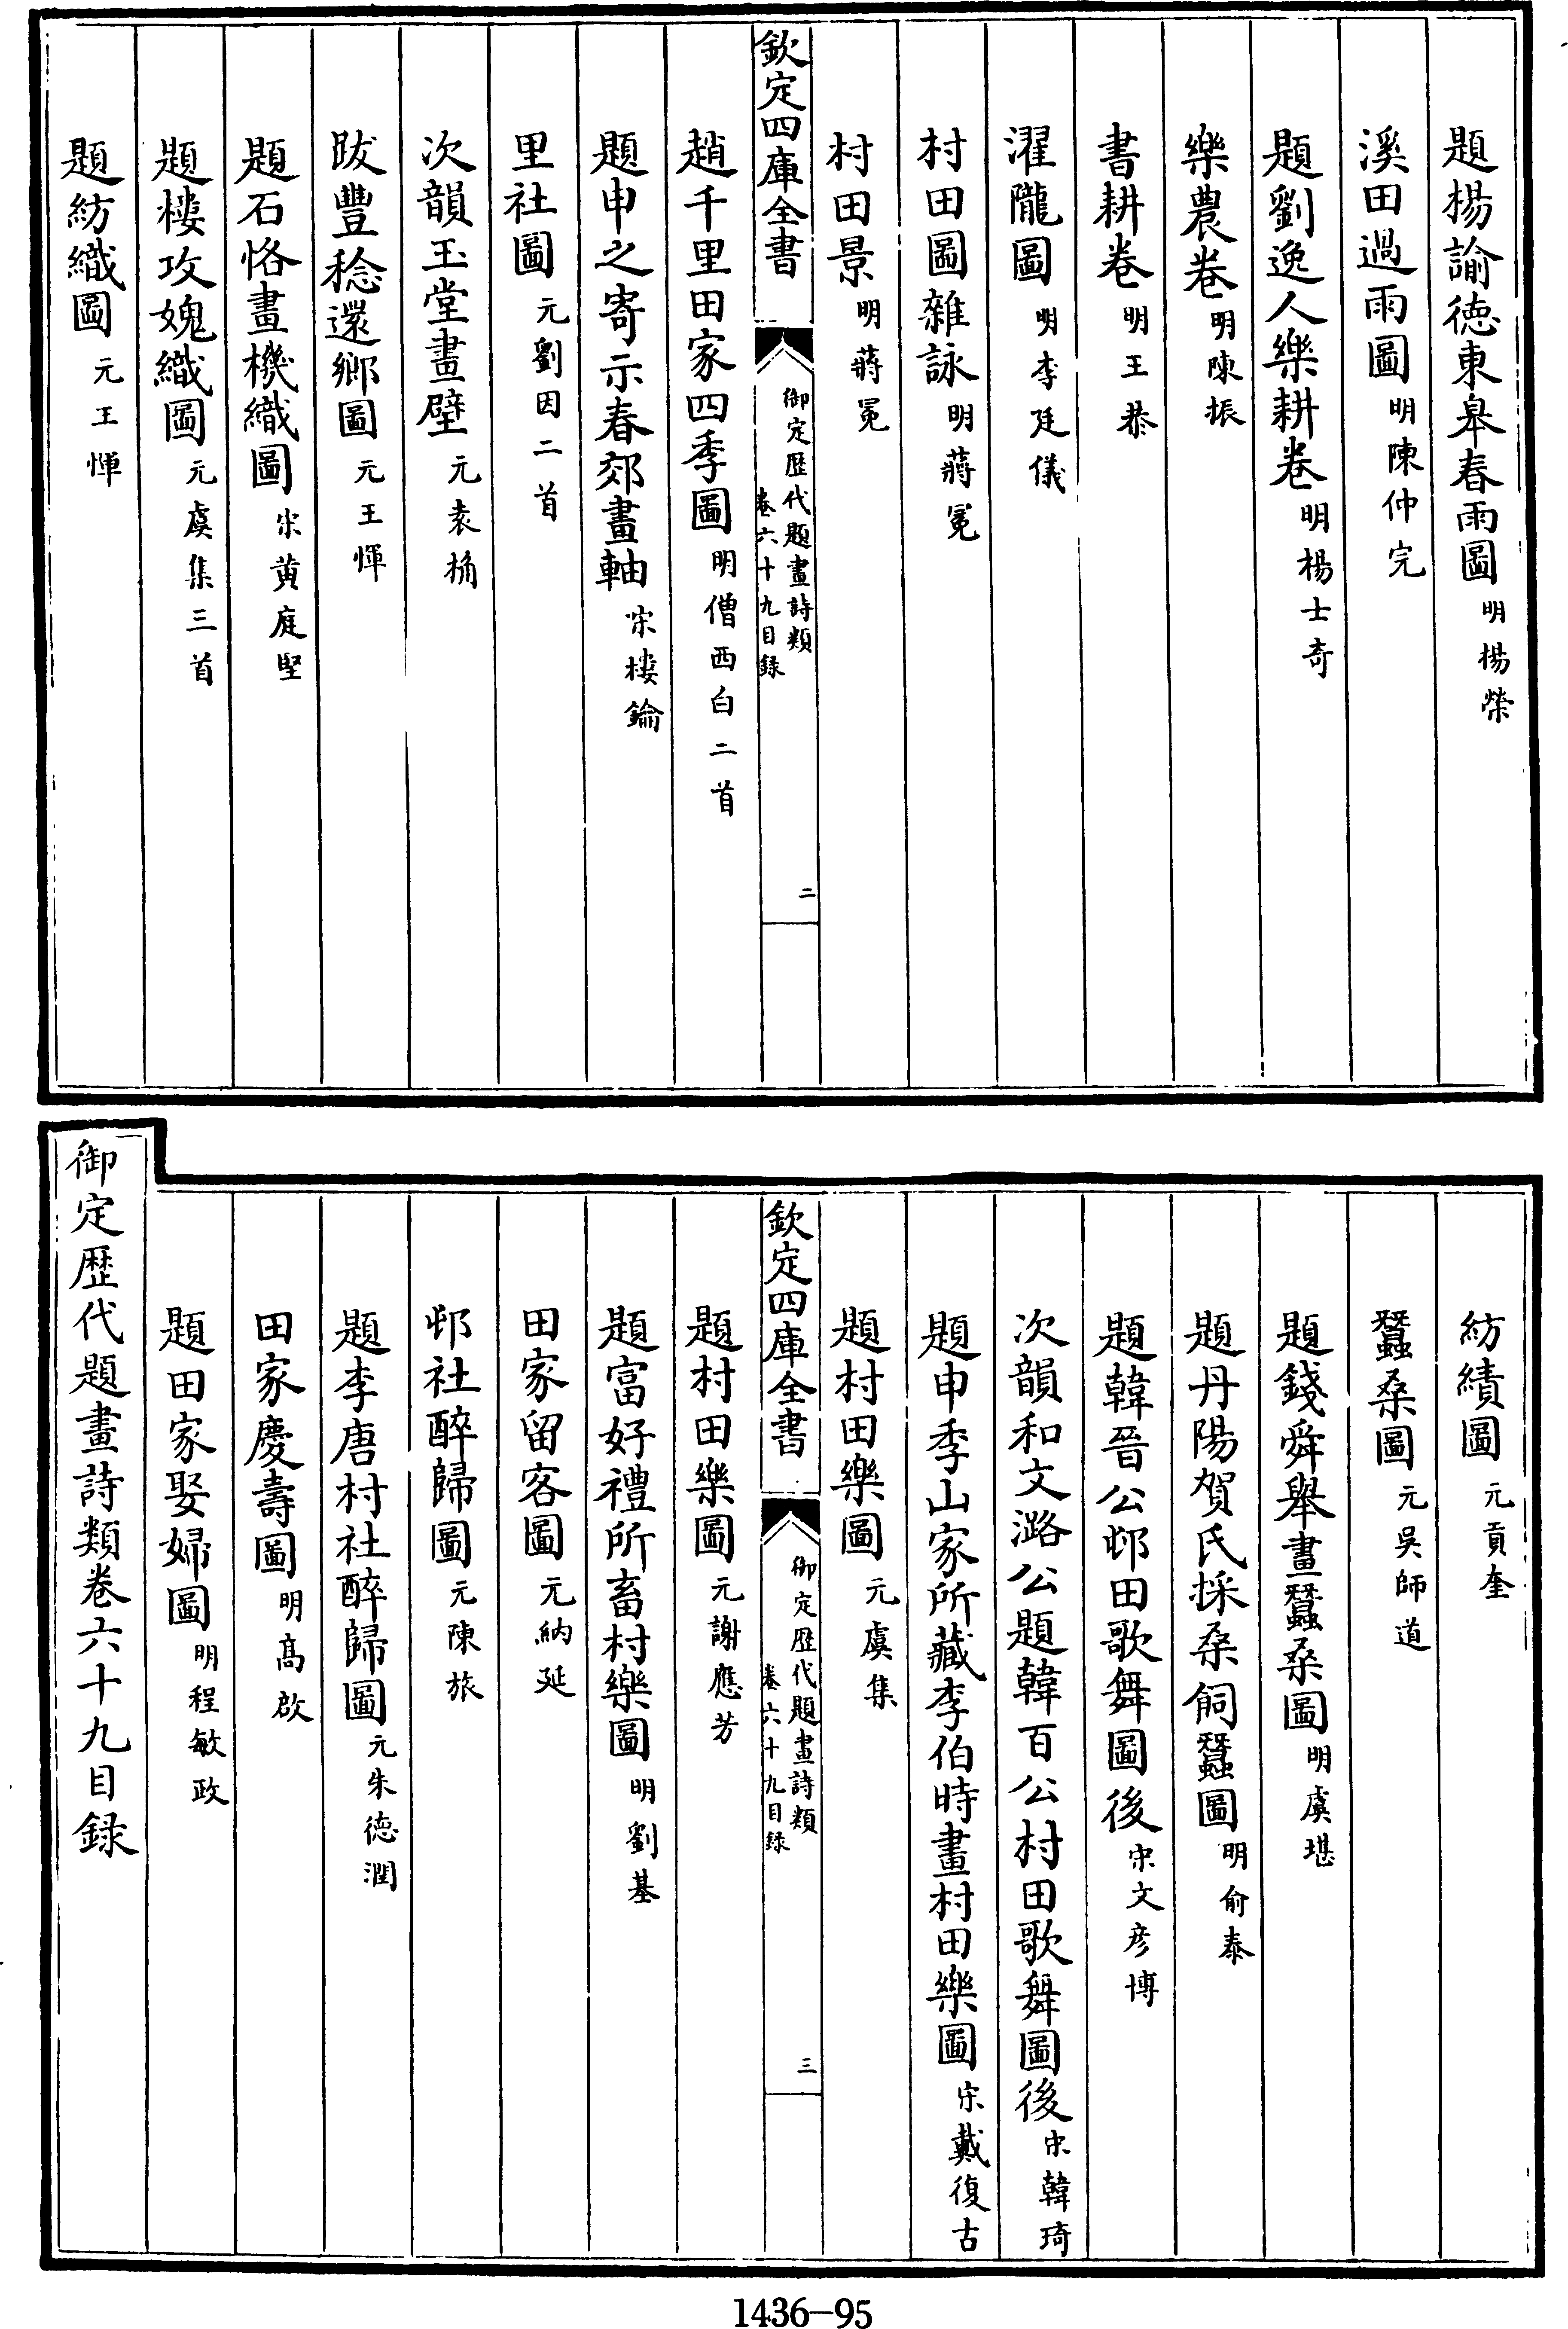 題楊諭德東皋春雨圖 明楊榮
溪田過雨圖 明陳仲完
題劉逸人樂耕卷 明楊士奇
樂農卷 明陳振
書耕卷 明王恭
濯隴圖 明李廷儀
村田圖雜詠 明蔣冕
村田景 明蔣冕
欽定四庫全書
御定歴代題畫詩類
卷六十九目錄
二
趙千里田家四季圖 明僧西白二首
題申之寄示春郊畫軸 宋樓鑰
里社圖 元劉因二首
次韻玉堂畫壁 元袁桷
跋豐稔還鄉圖 元王惲
題石恪畫機織圖 宋黃庭堅
題樓攻媿織圖 元虞集三首
題紡織圖 元王惲
紡績圖 元貢奎
蠶桑圖 元吳師道
題錢舜舉畫蠶桑圖 明虞堪
題丹陽賀氏採桑飼蠶圖 明俞泰
題韓晉公邨田歌舞圖後 宋文彥博
次韻和文潞公題韓百公村田歌舞圖後 宋韓琦
題申季山家所藏李伯時畫村田樂圖 宋戴復古
題村田樂圖 元虞集
欽定四庫全書
御定歴代題畫詩類
卷六十九目錄
三
題村田樂圖 元謝應芳
題富好禮所畜村樂圖 明劉基
田家留客圖 元納延
邨社醉歸圖 元陳旅
題李唐村社醉歸圖 元朱德潤
田家慶壽圖 明髙啟
題田家娶婦圖 明程敏政
御定歴代題畫詩類卷六十九目錄
1436-95